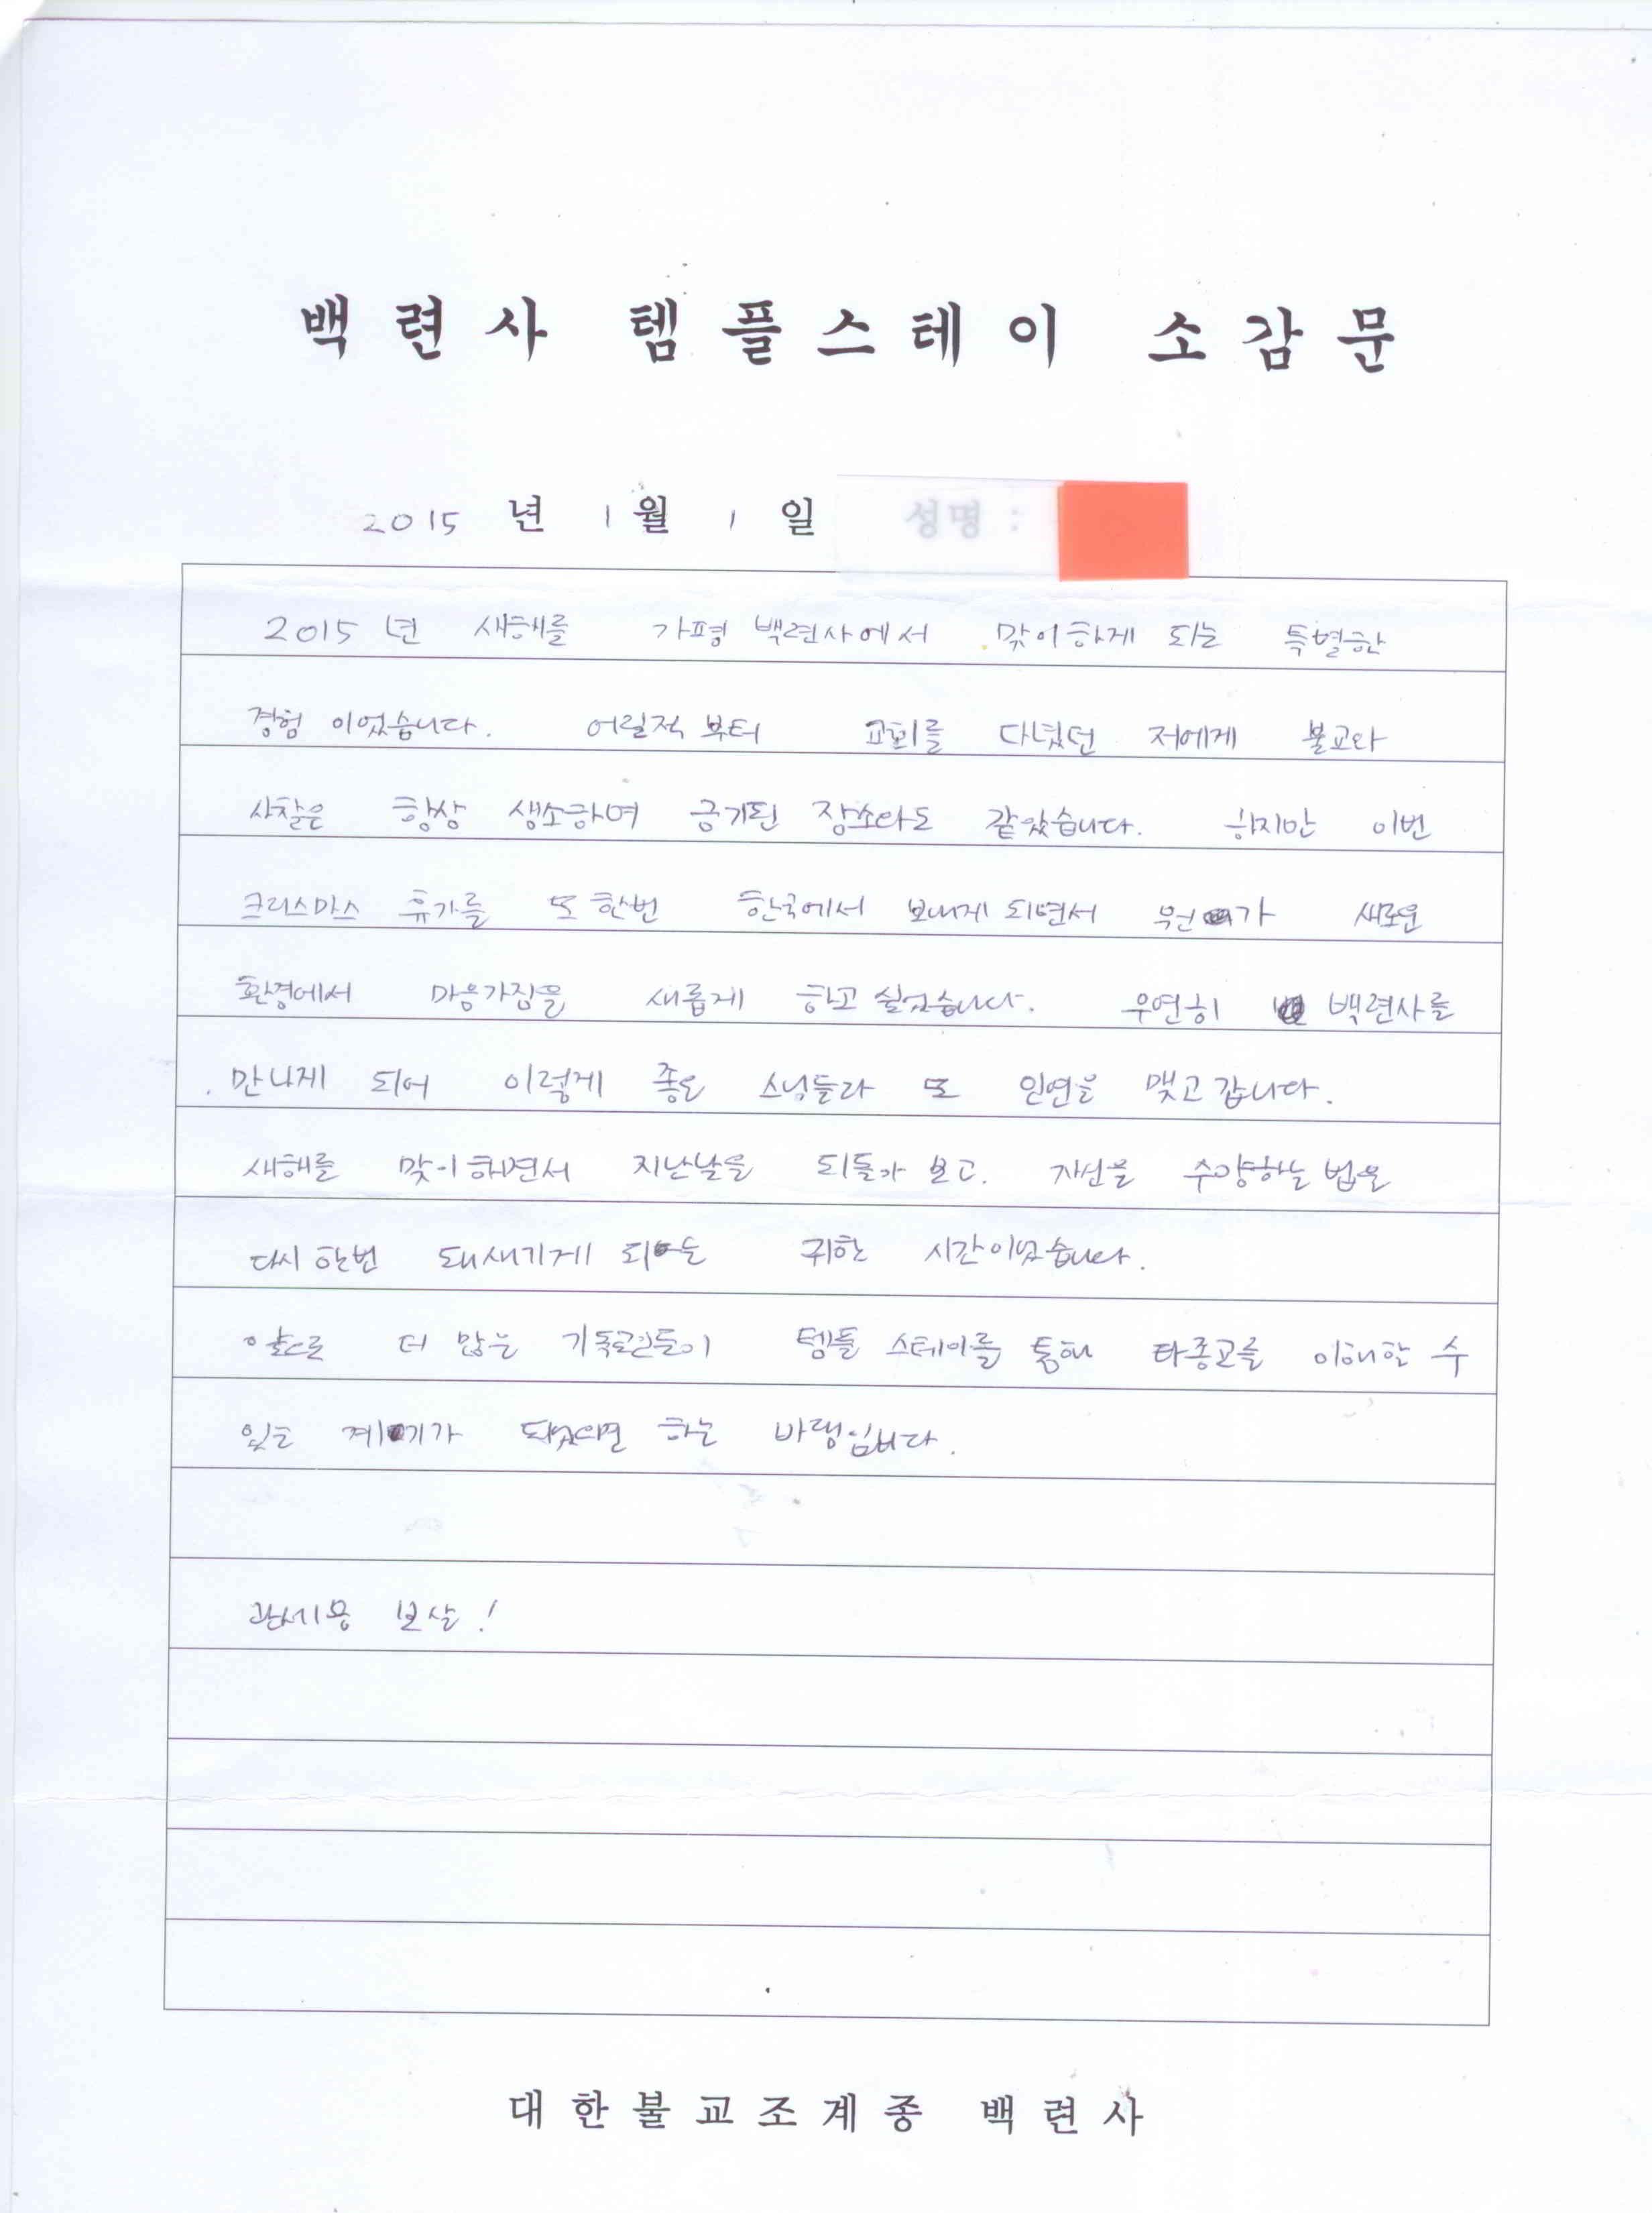 백련사 템플스테이 소감문
2015 년 1 월 1 일 성명 :
2015 년 새해를 가평 백련사에서 맞이하게 되는 특별한
경험 이었습니다. 어릴적 부터 교회를 다녔던 저에게 불교와
사찰은 항상 생소하며 금기된 장소라도 같았습니다. 하지만 이번
크리스마스 휴가를 또 한번 한국에서 보내게 되면서 무언가 새로운
환경에서 마음가짐을 새롭게 하고 싶었습니다. 우연히 백련사를
만나게 되어 이렇게 좋은 스님들과 또 인연을 맺고 갑니다.
새해를 맞이 하면서 지난날을 되돌아 보고. 자신을 수양하는 법을
다시 한번 돼새기게 되는 귀한 시간이었습니다.
앞으로 더 많은 기독교인들이 템플 스테이를 통해 타종교를 이해할 수
있는 계기가 되었으면 하는 바램입니다.
관세음 보살!
대한불교조계종 백련사